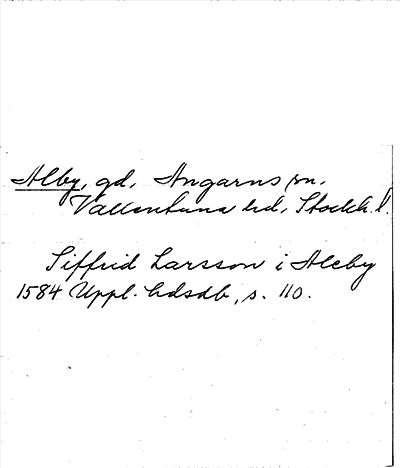 Alby, gd, Angarns sn,
Vallentuna hd, Stockh. l.
Siffrid Larsson i Aleby
1584 Uppl. hdsdb, s. 110.